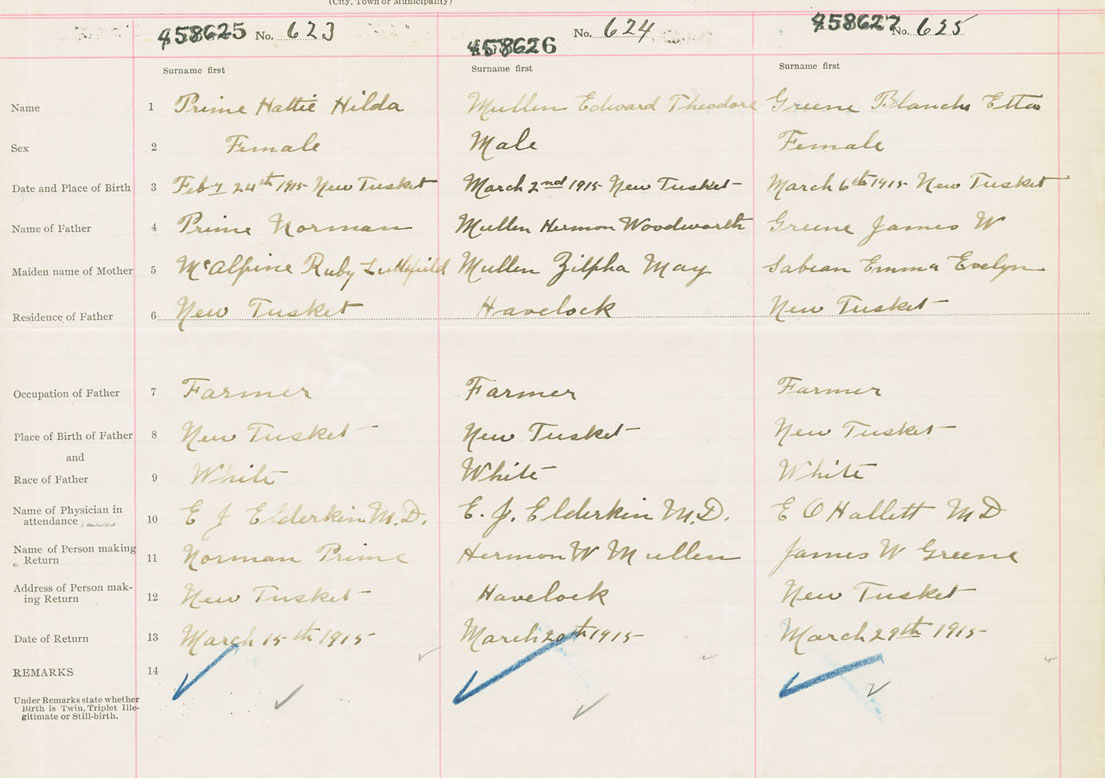 (City, Town or Municipality)
458625 No. 623 458626 No. 624 458627 No. 625
Surname first Surname first Surname first
Name 1 Prime Hattie Hilda Mullen Edward Theodore Greene Blanche Etta
Sex 2 Female Male Female
Date and Place of Birth 3 Feby 24th 1915 New Tusket March 2nd 1915 New Tusket March 6th 1915 New Tusket
Name of Father 4 Prime Norman Mullen Hermon Woodworth Greene James W
Maiden name of Mother 5 McAlpine Ruby Mullen Zilpha May Sabean Emma Evelyn
Residence of Father 6 New Tusket Havelock New Tusket
Occupation of Father 7 Farmer Farmer Farmer
Place of Birth of Father 8 New Tusket New Tusket New Tusket
and
Race of Father 9 White White White
Name of Physician in
attendance 10 E J Elderkin M.D. E. J. Elderkin M.D. E O Hallett M D
Name of Person making
Return 11 Norman Prime Hermon W Mullen James W Greene
Address of Person mak-
ing Return 12 New Tusket Havelock New Tusket
Date of Return 13 March 15th 1915 March 20th 1915 March 29th 1915
REMARKS 14
Under Remarks state whether
Birth is Twin, Triplet Ille-
gitimate or Still-birth.